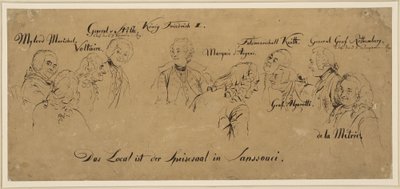 Mylord Marschal.
General v. Stille
Voltaire.
König Friedrich II.
Marquis d'Argens.
Feldmarschall Keith.
General Graf Rothenburg.
Graf Algarotti.
de la Métrie.
Das Local ist der Speisesaal in Sanssouci.